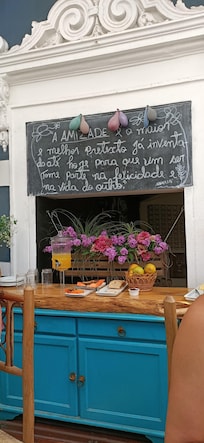 A AMIZADE é o maior
e melhor pretexto já inventa
do até hoje para que um ser
tome parte na felicidade e
na vida do outro!